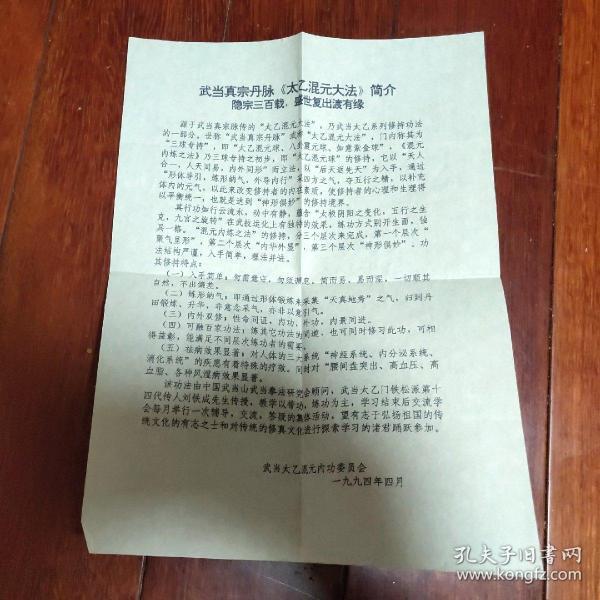 武当真宗丹脉《太乙混元大法》简介
隐宗三百载，盛世复出渡有缘
源于武当真宗脉传的“太乙混元大法”，乃武当太乙系列修持功法
的一部分。世称“武当真宗丹脉”或称“太乙混元大法”，门内称其为
“三球专持”，即“太乙混元球、八卦震元球、如意紫金球”，《混元
内炼之法》乃三球专持之初步，即“太乙混元球”的修持，它以“天人
合一，人天同易，内外同形”而立法，以“后天返先天”为入手，通过
“形体导引，炼形的气，外导内行”采四方之气，夺五行之精，以补充
体内的元气，以此来改变修持者的内在素质，使修持者的心理和生理得
以平衡统一，也就是达到“神形俱妙”的修持境界。
其行功如行云流水，动中有静，蕴含“太极阴阳之变化，五行之生
克，九宫之旋转”在武技运化上有独特的效果，练功方式别开生面，独
具一格。“混元内炼之法”的修持，分三个层次来完成，第一个层次“
聚气显形”，第二个层次“内华外显”，第三个层次“神形俱妙”。功
法结构严谨，入手简单，理法并注。
其修持特点：
（一）入手简单；勿需意守，勿须调息，简而易，易而深，一切顺其
自然，不出偏差。
（二）炼形的气；即通过形体锻炼来采集“天真地秀”之气，归到丹
田锻炼、升华，非意念采气，亦非以意引气。
（三）内外双修；性命同证，内功、外功，内景同进。
（四）可融百家功法；炼其它功法的同道，也可同时修习此功，可相
得益彰，能满足不同层次练功者的需要。
（五）祛病效果显著；对人体的三大系统“神经系统、内分泌系统、
消化系统”的疾患有着特殊的疗效。同时对“腰间盘突出、高血压、高
血脂、各种风湿病效果显著。
该功法由中国武当山武当拳法研究会顾问，武当太乙门铁松派第十
四代传人刘铁成先生传授。教学以带功，练功为主，学习结束后交流学
会每月举行一次辅导，交流，答疑的集体活动。望有志于弘扬祖国的传
统文化的有志之士和对传统的修真文化进行探索学习的诸君踊跃参加。
武当太乙混元内功委员会
一九九四年四月
孔夫子旧书网
www.kongfz.com